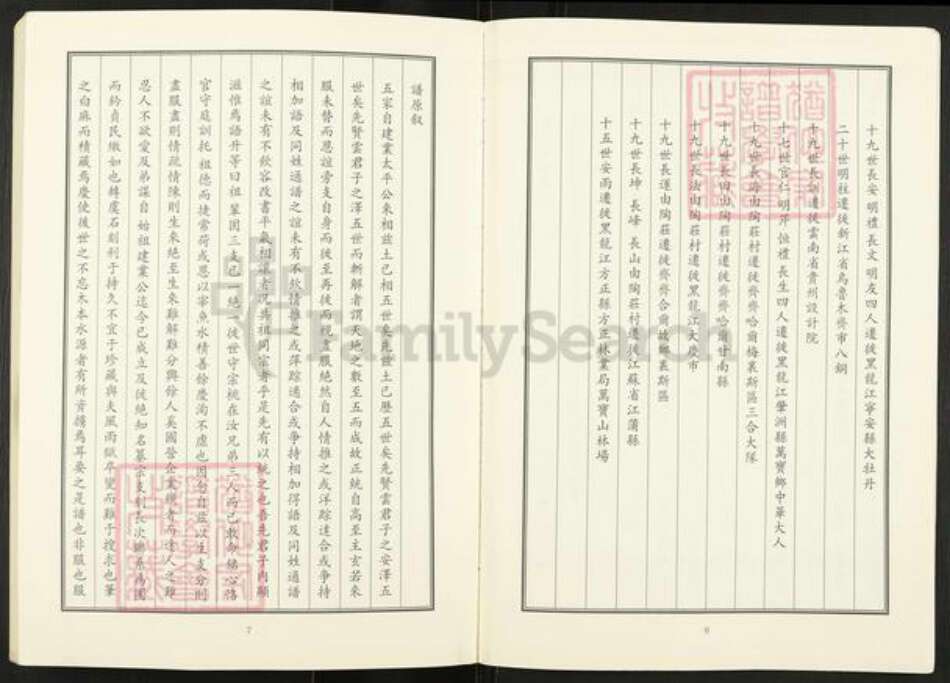 十九世長安 明禮 長文 明友四人遷徙黑龍江寧安縣大牡丹
二十世明柱遷徙新江省烏魯木齊市八鋼
十九世長訓遷徙雲南省貴州設計院
十七世官仁 明芹 恒禮 長生四人遷徙黑龍江肇洲縣萬寶鄉中華大人
十九世長海由陶莊村遷徙齊齊哈爾梅裏斯區三合大隊
十九世長田由陶莊村遷徙齊齊哈爾甘南縣
十九世長法由陶莊村遷徙黑龍江大慶市
十九世長運由陶莊遷徙齊齊合爾故鄉裏斯區
十九世長坤 長峰 長山由陶莊村遷徙江蘇省江蒲縣
十五世安雨遷徙黑龍江方正縣方正林業局萬寶山林場
6
譜原叙
五家自建業太平公來相茲土已相五世矣先茲土已歷五世矣先賢雲君子之安澤五
世矣先賢雲君子之澤五世而斬解者謂天地之數至五而成故正統自高至玄若來
服未替而恩誼旁支自身而後至再從而視盡服絕然自人情推之或洋踪達合或爭持
相加語及同姓通譜之誼未有不欣情推之或萍踪達合或爭持相加得語及同姓通譜
之誼未有不欣容改書平氣相讓者況共祖同宗者乎是先有以統之也吾先君子內顧
滋惟為語升等曰祖 三支已一絕 後世守宗祧在汝兄弟三人而已敢命锑心胳
官守庭訓託 祖德而捷常荷或恩以寧魚水積善餘慶洵不虛也因忽自茲以生支分則
盡服盡則情疏情陳則生來絕至生來難解難分與餘人吳國營企業續者而達人之難
忍人不欲愛及弟謀自 始祖建業公迄今已成立及徙絕知名纂宗支別長次聯系揭圖
而於貞民緻如也韓虞石刻利于持久不宜于珍藏與夫風雨 卒變而難于搜求也筆
之白麻而積藏為慶使後世之不忘木本水源者有所肯鏡為耳要之是譜也非服也服
7